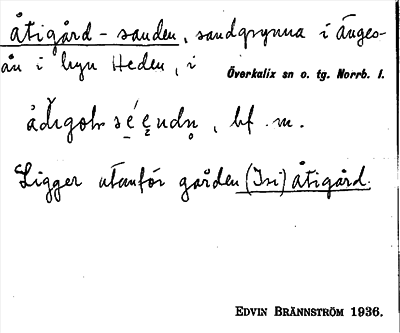 åtigård-sanden, sandgrynna i Änges-
ån i byn Heden, i Överkalix sn o. tg. Norrb. l.
bf. m.
Ligger utanför gården (Isi) åtigård.
EDVIN BRÄNNSTRÖM 1936.